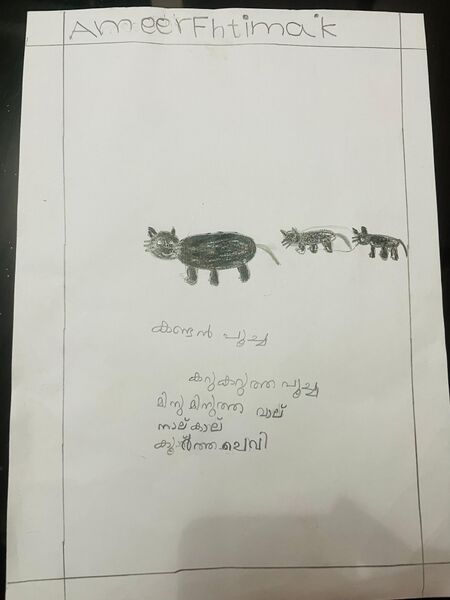 AmeerFhtima.k
കണ്ടൻ പൂച്ച
കറുകറുത്ത പൂച്ച
മിനുമിനുത്ത വാല്
നാല് കാല്
കൂർത്ത ചെവി